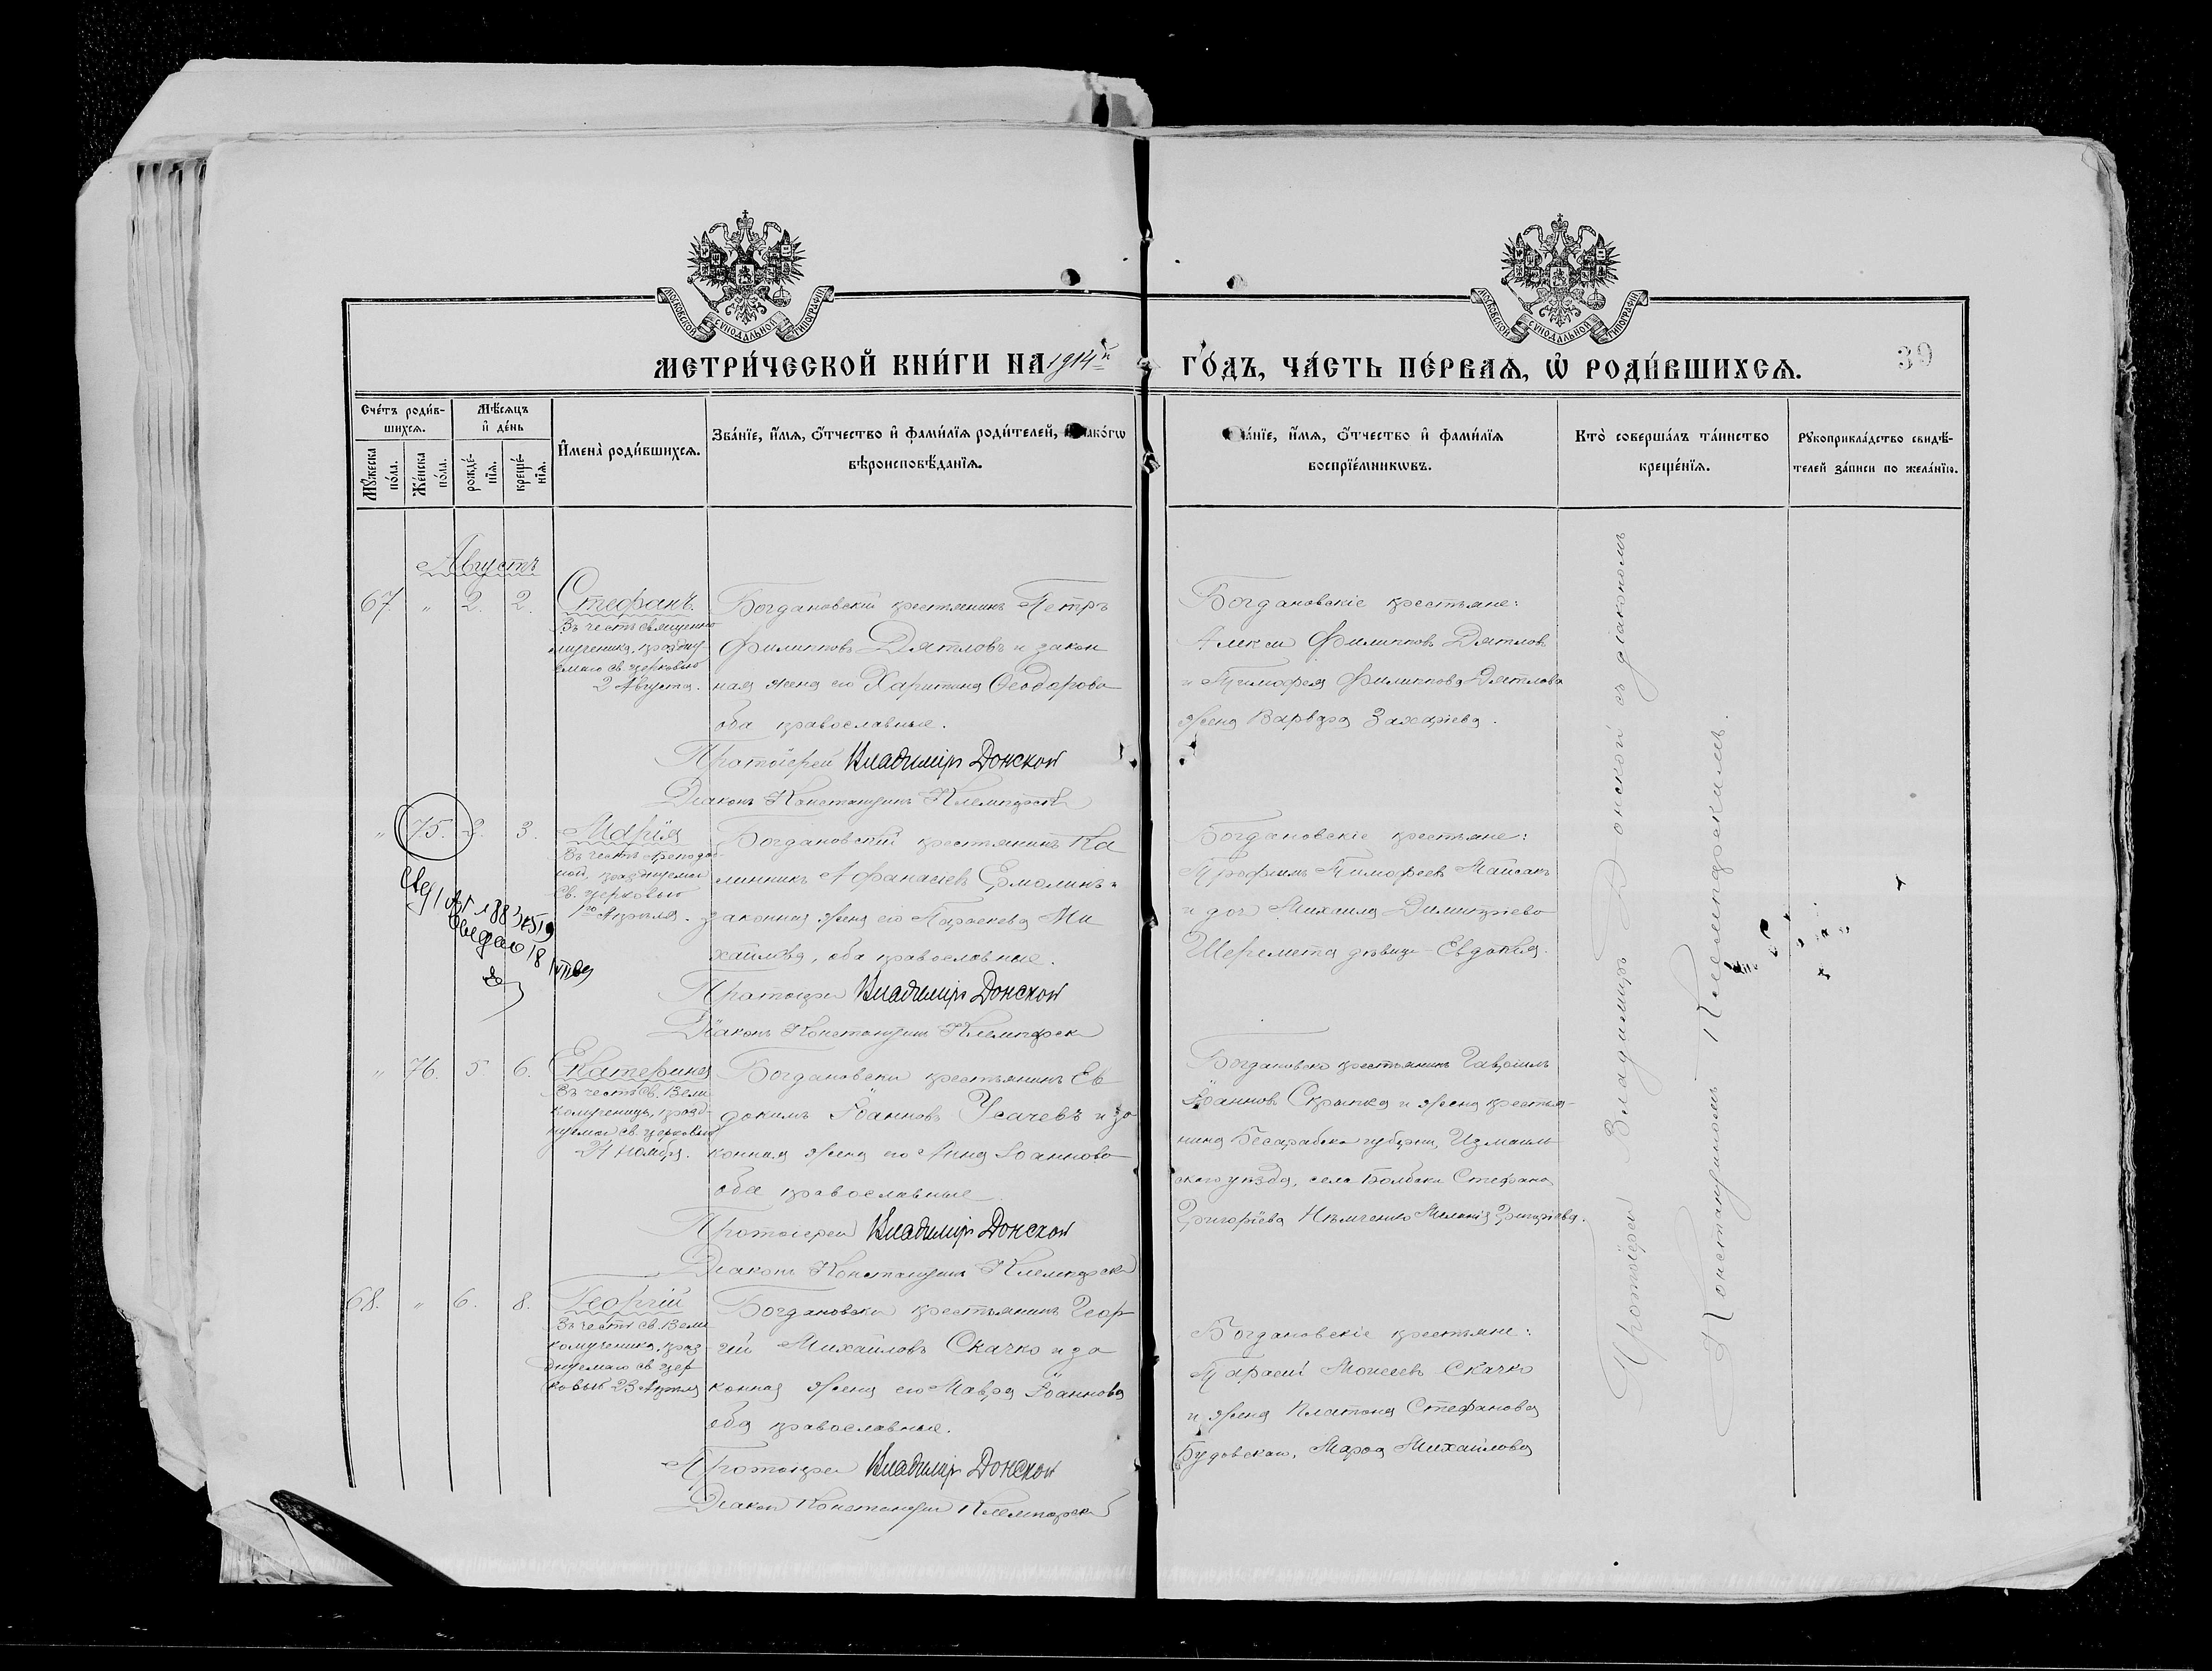 МОСКОВСКОЙ СУНОДАЛЬНОЙ ТИПОГРАФІИ
МОСКОВСКОЙ СУНОДАЛЬНОЙ ТИПОГРАФІИ
МЕТРИ́ЧЕСКОЙ КНИ́ГИ НА 1914й ГО́ДЪ, ЧА́СТЬ ПЕ́РВАѦ, Ѡ҆ РОДИ́ВШИХСѦ.
39
Сче́тъ роди́в-
шихсѧ.
Мѣ́сѧцъ
и҆ де́нь
Мꙋ́жеска
по́ла.
Же́нска
по́ла.
рожде́-
нїѧ.
креще́-
нїѧ.
И҆мена̀ роди́вшихсѧ.
Зва́нїе, и҆́мѧ, ѻ҆́тчество и҆ фами́лїѧ роди́телей,
вѣроисповѣ́данїѧ.
и҆́мѧ, ѻ҆́тчество и҆ фами́лїѧ
воспрїе́мникѡвъ.
Кто̀ соверша́лъ та́инство
креще́нїѧ.
Рꙋкоприкла́дство свидѣ́-
телей за́писи по жела́нїю.
Августъ
67. " 2. 2. Стефанъ.
Въ честь священно
мученика, праздну
емаго св. церковью
2 Августа.
Богдановскій крестьянинъ Петръ
Филипповъ Дятловъ и закон
ная жена его Харитина Ѳеодорова
оба православные.
Протоіерей Владиміръ Донской
Діаконъ Константинъ
Богдановскіе крестьяне:
Алексѣй Филипповъ Дятловъ
и Тимофея Филиппова Дятлова
жена Варвара Захаріева.
" 75. 2. 3. Марія
Въ честь преподоб
ной, празднуемой
св. церковью
1го Апрѣля.
Богдановскій крестьянинъ Ка
линникъ Афанасіевъ Ермолинъ и
законная жена его Параскева Ми
хайлова, оба православные.
Протоіерей Владиміръ Донской
Діаконъ Константинъ
Богдановскіе крестьяне:
Трофимъ Тимофеевъ Майсакъ
и дочь Михаила Димитріева
Шеремета дѣвица Евдокія.
" 76. 5 6. Екатерина
Въ честь св. Вели
комученицы, празд-
нуемой св. церковью
24 ноября.
Богдановскій крестьянинъ Ев
докимъ Іоанновъ Усачевъ и за
конная жена его Анна Іоаннова
оба православные
Протоіерей Владиміръ Донской
Діаконъ Константинъ
Богдановскій крестьянинъ Гавріилъ
Іоанновъ Скрыпка и жена крестья-
нина Бесарабской губерніи, Измаиль
скаго уѣзда, села Стефана
Григоріева Нѣмченко Меланія Григоріева.
68. " 6. 8. Георгій
Въ честь св. Вели
комученика, праз
днуемаго св. цер
ковью 23 Апрѣля
Богдановскій крестьянинъ Геор
гій Михайловъ Скачко и за
конная жена его Мавра Іоаннова
оба православные.
Протоіерей Владиміръ Донской
Діаконъ Константинъ
Богдановскіе крестьяне:
Тарасій Моисеевъ Скачко
и жена Платона Стефанова
Михайлова
Протоіерей Владиміръ Донской съ діакономъ
Константиномъ